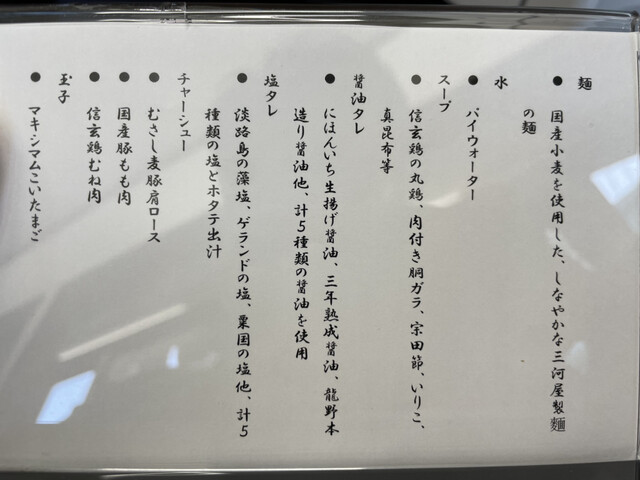 麺
● 国産小麦を使用した、しなやかな三河屋製麺
の麺
水
● パイウォーター
スープ
● 信玄鶏の丸鶏、肉付き胴ガラ、宗田節、いりこ、
真昆布等
醤油タレ
● にほんいち生揚げ醤油、三年熟成醤油、龍野本
造り醤油他、計5種類の醤油を使用
塩タレ
● 淡路島の藻塩、ゲランドの塩、粟国の塩他、計5
種類の塩とホタテ出汁
チャーシュー
● むさし麦豚肩ロース
● 国産豚もも肉
● 信玄鶏むね肉
玉子
● マキシマムこいたまご